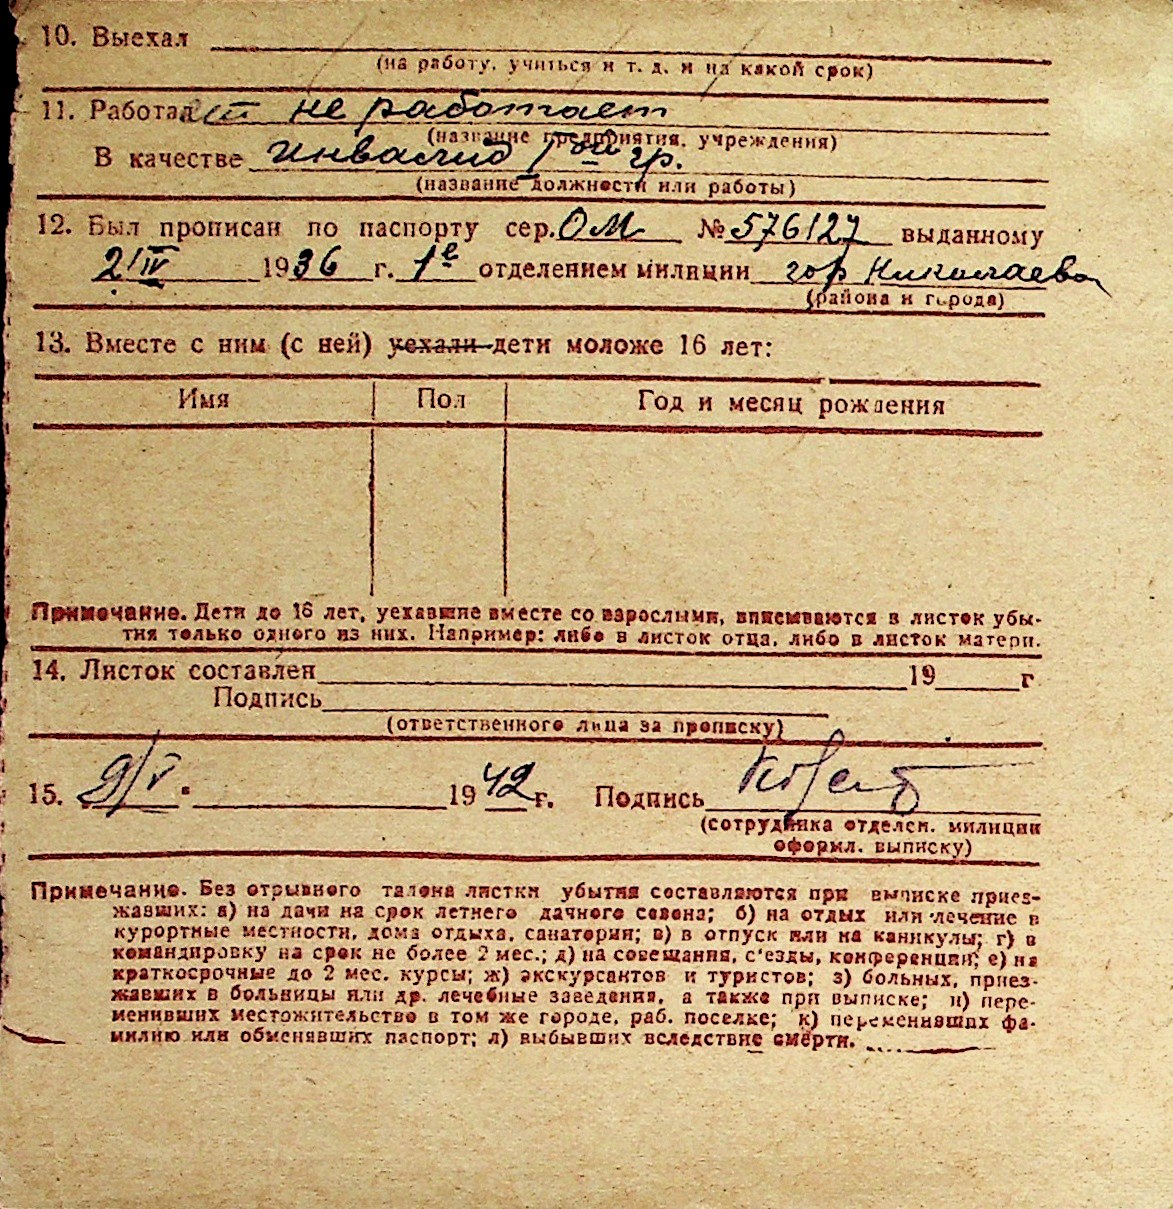 10. Выехал
(на работу, учиться и т. д. и на какой срок)
11. Работал не работает
(название предприятия, учреждения)
В качестве инвалид 1ой гр.
(название должности или работы)
12. Был прописан по паспорту сер. ОМ № 576127 выданному
2/IV 1936 г. 1е отделением милиции гор Николаева
(района и города)
13. Вместе с ним (с ней) уехали дети моложе 16 лет:
Имя Пол Год и месяц рождения
Примечание. Дети до 16 лет, уехавшие вместе со взрослыми, вписываются в листок убы-
тия только одного из них. Например: либо в листок отца, либо в листок матери.
14. Листок составлен 19 г
Подпись
(ответственного лица за прописку)
15. 9/V 1942 г. Подпись
(сотрудника отделен. милиции
оформл. выписку)
Примечание. Без отрывного талона листки убытия составляются при выписке приез-
жавших: а) на дачи на срок летнего дачного сезона; б) на отдых или лечение в
курортные местности, дома отдыха, санатории; в) в отпуск или на каникулы; г) в
командировку на срок не более 2 мес.; д) на совещания, с'езды, конференции; е) на
краткосрочные до 2 мес. курсы; ж) экскурсантов и туристов; з) больных, приез-
жавших в больницы или др. лечебные заведения, а также при выписке; и) пере-
менивших местожительство в том же городе, раб. поселке; к) переменивших фа-
милию или обменявших паспорт; л) выбывших вследствие смерти.